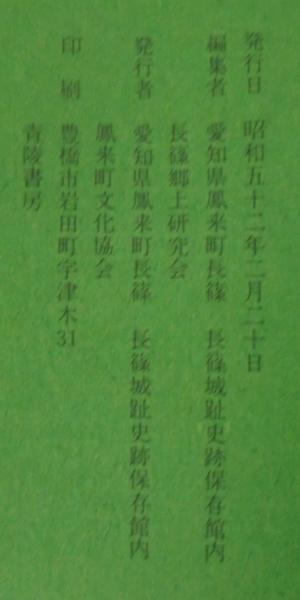 発行日 昭和五十二年二月二十日
編集者 愛知県鳳来町長篠 長篠城趾史跡保存館内
長篠郷土研究会
発行者 愛知県鳳来町長篠 長篠城趾史跡保存館内
鳳来町文化協会
印刷 豊橋市岩田町字津木31
青陵書房